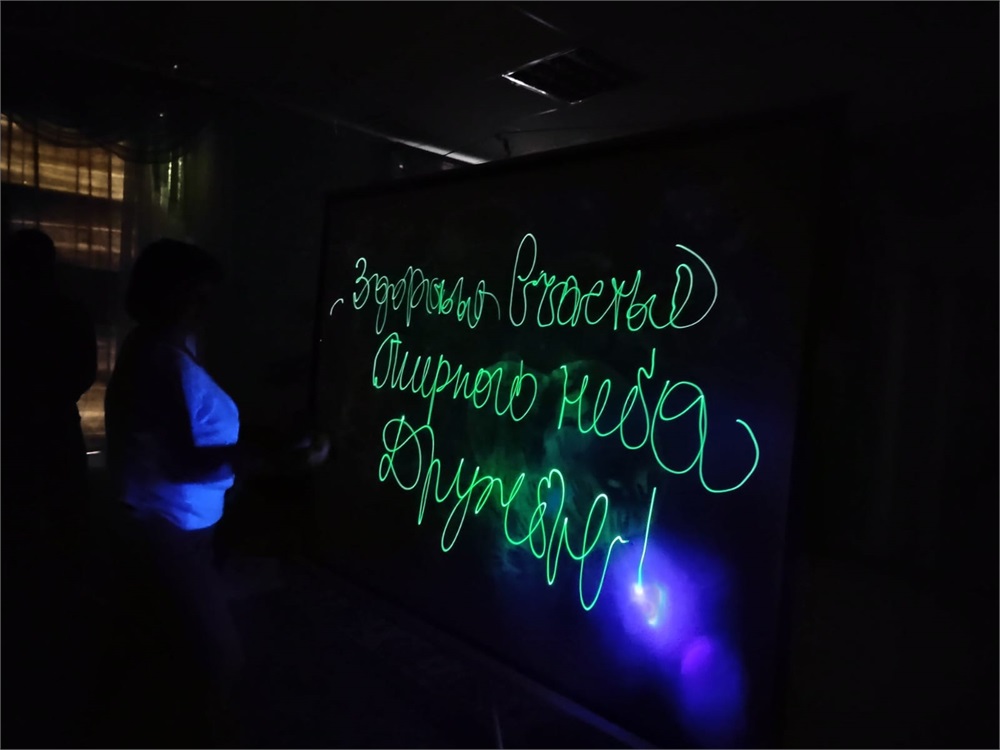 Здоровья Счастья
Мирного неба
Дружбы!